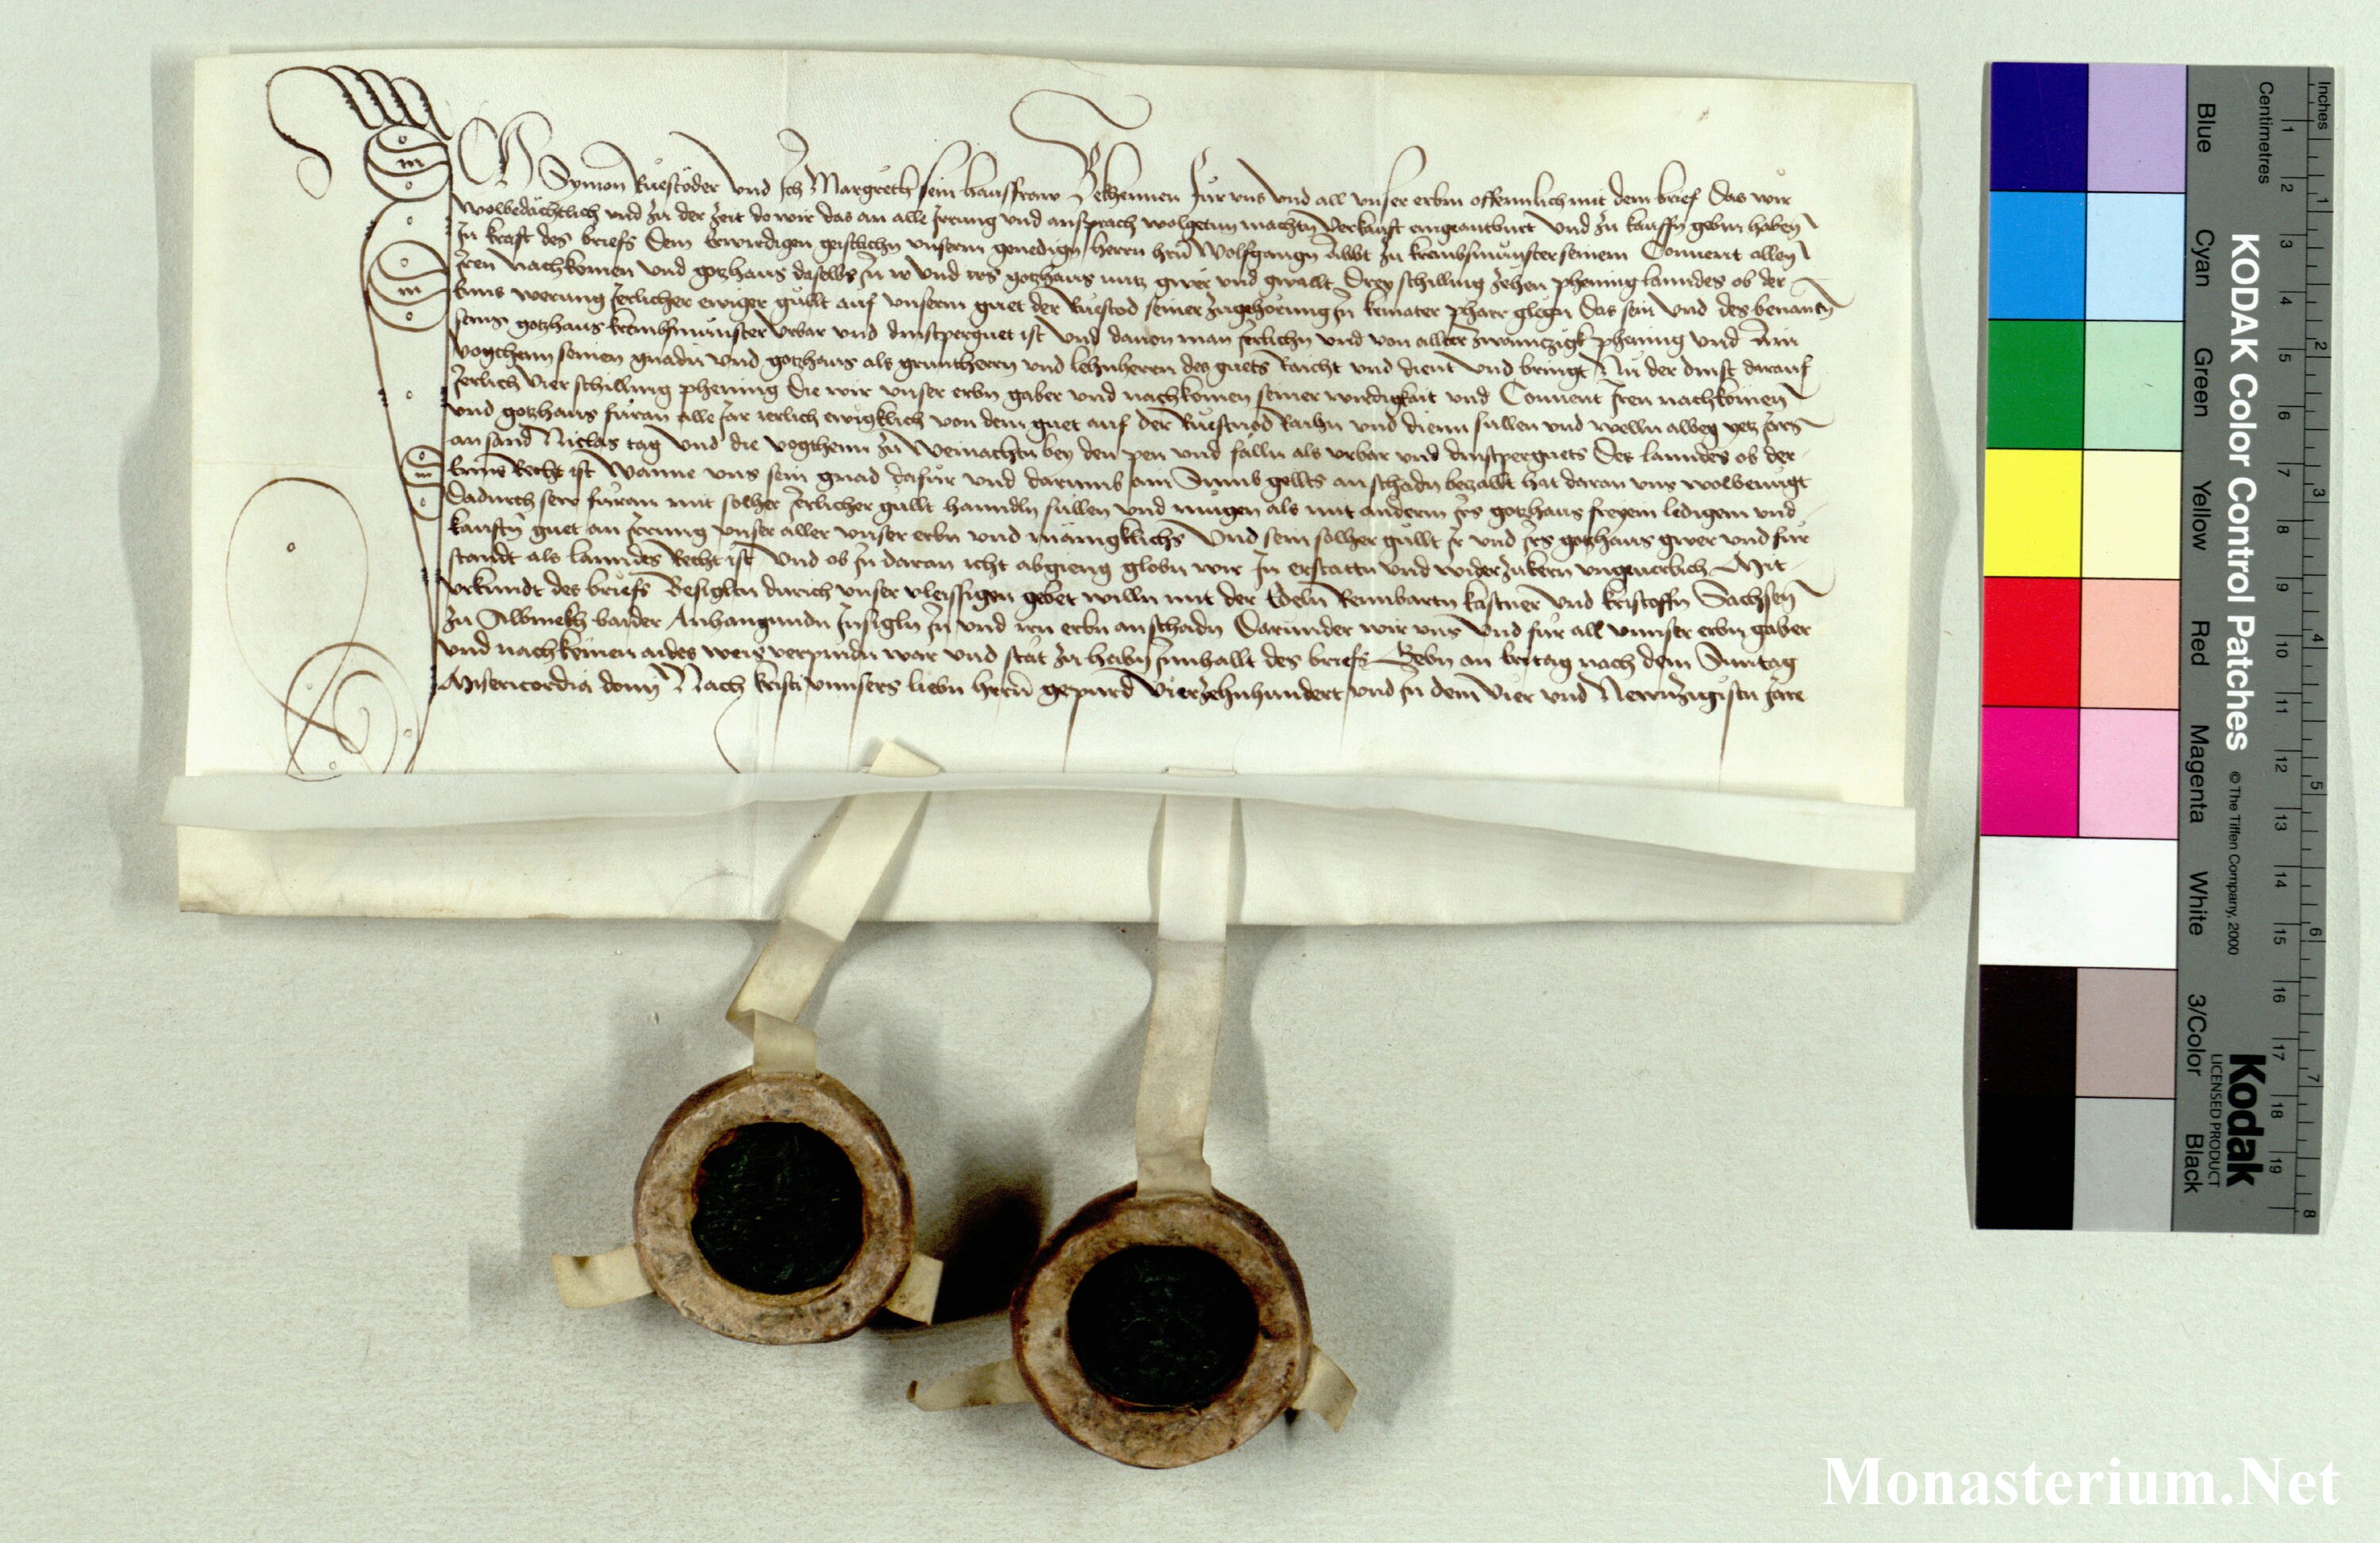 Ich Symon Ruestöder und Ich Margreth sein hausfraw Bekhennen für uns und all unser erbm offennlich mit dem brief Das wir
wolbedächtlich und zu der zeit do wir das an alle Irrung und ansprach wolgetun machtn Verkauft eingeantburt und zu kauffn gebm haben
In kraft des briefs Dem Erwirdigen geistlichn unserm genedign herrn hrn Wolfgangn Abbt zu krembsmünster seinem Convent allen
Iren nachkomen und gotzhaus daselbs In ir und irs gotzhaus nutz gwer und gwallt Drey schilling zehen phening lanndes ob der
Enns werung Jerlicher ewiger güllt auf unserm guet der Ruestod seiner zugehörung In kemater pharr glegn Das sein und des benantn
seins gotzhaus krembsmünster urbar und dinstperguet ist und davon man Jerlichn und von allter zwainczigk phening und Ain
vogthenn seinen gnadn und gotzhaus als gruntherrn und lehnherrn des guets Raicht und dient und bringt Nu der dinst darauf
Jerlich Vier schilling phening die wir unser erbn gaber und nachkomen seiner wirdigkait und Convent Iren nachkomen
und gotzhaus füran alle Jar ierlich ewigklich von dem guet auf der Ruestnöd Raihn und dienn süllen und welln albeg yetz Jars
an sand Niclas tag und die vogthenn zu Weinachtn bey den pen und fälln als urbar und dinstperguets Des lanndes ob der
Enns Recht ist Wanne uns sein gnad dafür und darumb ain Summ gellts an schadn bezallt hat daran uns wolbenügt
Dadurch sew füran mit solher Jerlicher güllt hanndln süllen und mügen als mit anderm Irs gotzhaus freyem ledigem und
kauftn guet an Irrung unser aller unser erbn und mänigklichs Und sein solher güllt Ir und Irs gotzhaus gwer und für
standt als lanndes Recht ist Und ob In daran icht abgieng globn wir In erstattn und widerzukern ungeverlich Mit
urkundt des briefs Besiglten durich unser vleissigen gebet willn mit der Edeln Reinbartn kastner und kristoffn Sachsen
zu Albmekh baider Anhangundn Insigln In und irn erbn an schadn Darunder wir uns und für all unnser erbn gaber
und nachkomen aides weis verpindn war und stät zu habn Innhallt des briefs Gebn an Eritag nach dem Suntag
Misericordia domini Nach kristi unnsers liebn herrn gepurd Vierzehnhundert und In dem Vier und Newnzigistn Jare
KODAK Color Control Patches © The Tiffen Company, 2000
Kodak
LICENSED PRODUCT
Blue Cyan Green Yellow Red Magenta White 3/Color Black
Inches
1 2 3 4 5 6 7 8
Centimetres
1 2 3 4 5 6 7 8 9 10 11 12 13 14 15 16 17 18 19
Monasterium.Net